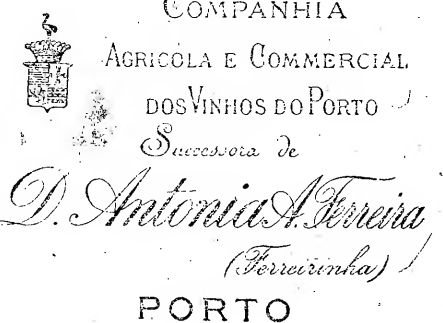 COMPANHIA
AGRICOLA E COMMERCIAL
DOS VINHOS DO PORTO
Successora de
D. Antonia A. Ferreira
(Ferreirinha)
PORTO